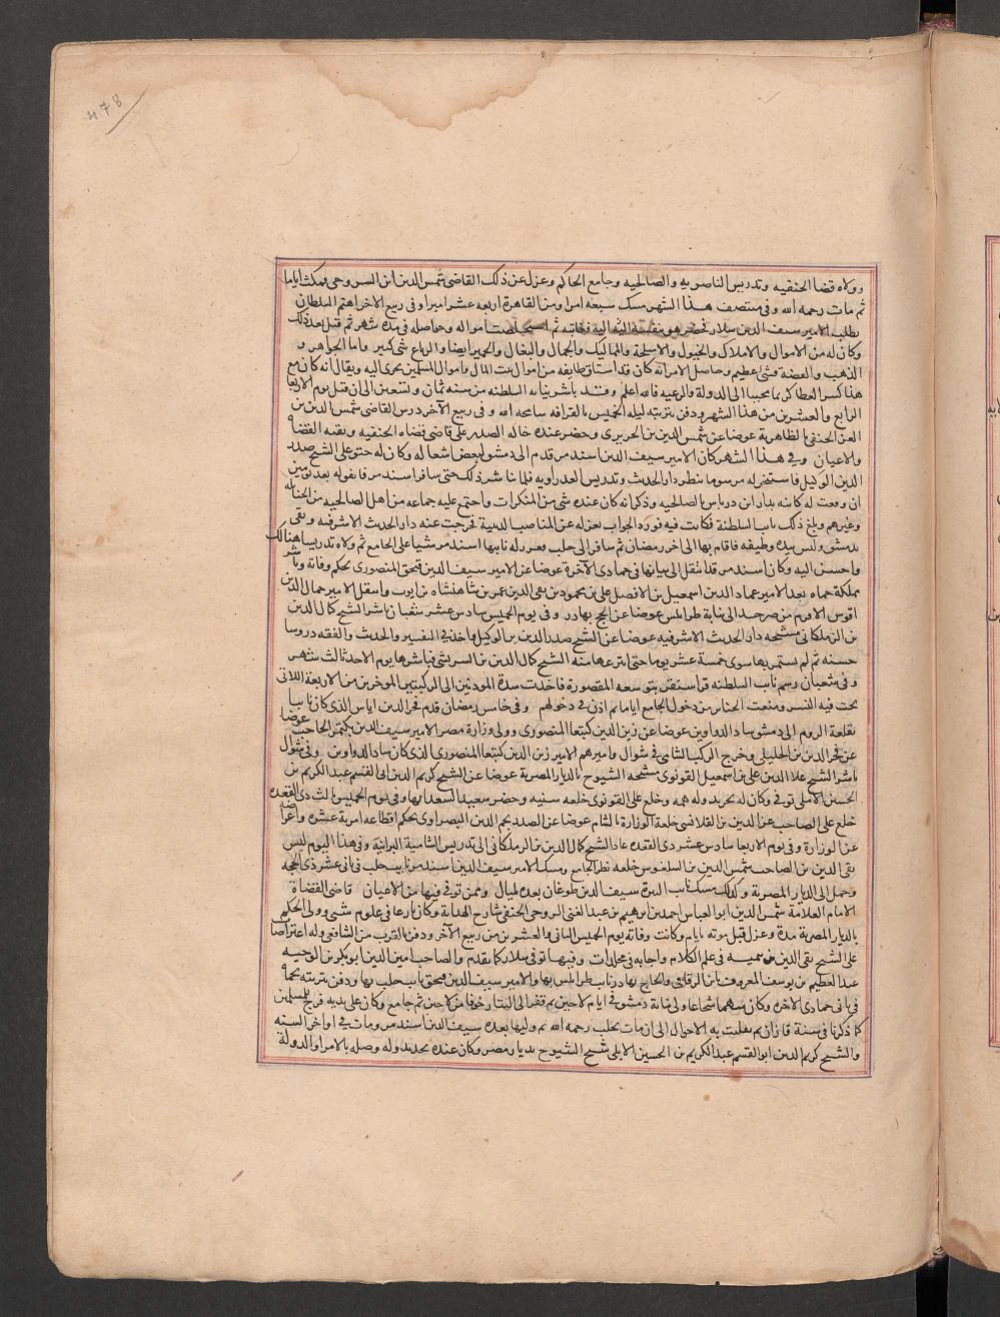 478
وولاه قضا الحنفيه وتدريس الناصريه والصالحيه وجامع الحاكم وعزل عن ذلك القاضى شمس الدين ابن السروجى فمكث اياما
ثم مات رحمه الله وفى منتصف هذا الشهر مسك سبعه امرا ومن القاهرة اربعه عشر اميرا وفى ربيع الاخر اهتم السلطان
بطلب الامير سيف الدين سلار فحضر هو بنفسه اليه فعاتبه ثم استخلصت امواله وحواصله فى مدة شهر ثم قتل بعد ذلك
وكان له من الاموال والاملاك والخيول والاسلحة والمماليك والجمال والبغال والحمير ايضا والرباع شى كثير واما الجواهر و
الذهب والفضة فشى عظيم وحاصل الامر انه كان قد استاثر طايفه من اموال بيت المال واموال المسلمين تجرى اليه ويقال انه كان مع
هذا كثير العطا كريما محببا الى الدولة والرعيه فالله اعلم وقد باشر نيابه السلطنه من سنه ثمان وتسعين الى ان قتل يوم الاربعا
الرابع والعشرين من هذا الشهر ودفن بتربته ليله الخميس بالقرافه سامحه الله وفى ربيع الآخر درس القاضى شمس الدين بن
العز الحنفى بالظاهرية عوضا عن شمس الدين بن الحريرى وحضر عنده خاله الصدر على قاضى قضاه الحنفيه وبقيه القضاه
والاعيان وفى هذا الشهر كان الامير سيف الدين اسندمر قدم الى دمشق لبعض اشغاله وكان له حنو على الشيخ صدر
الدين الوكيل فاستنجز له مرسوما بنظر دار الحديث وتدريس العذراويه فلم يباشر ذلك حتى سافر اسندمر فاتفق له بعد يومين
ان وقعت له كاينه بدار ابن درباس بالصالحيه وذكر انه كان عنده شى من المنكرات واجتمع عليه جماعه من اهل الصالحيه من الحنابله
وغيرهم وبلغ ذلك نايب السلطنة فكاتب فيه فورد الجواب بعزله عن المناصب الدينية فخرجت عنه دار الحديث الاشرفيه وبقى
بدمشق وليس بيده وظيفه فاقام بها الى اخر رمضان ثم سافر الى حلب فقرر له نايبها اسندمر شيا على الجامع ثم ولاه تدريسا هناك
واحسن اليه وكان اسندمر قد انتقل الى نيابتها فى جمادى الآخرة عوضا عن الامير سيف الدين قبجق المنصورى بحكم وفاته وباشر
مملكة حماه بعد الامير عماد الدين اسمعيل بن الافضل على بن محمود بن تقى الدين عمر بن شاهنشاه بن ايوب وانتقل الامير جمال الدين
اقوش الافرم من صرخد الى نيابة طرابلس عوضا عن الحج بهادر وفى يوم الخميس سادس عشر شعبان باشر الشيخ كمال الدين
بن الزملكانى مشيخه دار الحديث الاشرفيه عوضا عن الشيخ صدر الدين بن الوكيل واخذ فى التفسير والحديث والفقه دروسا
حسنه ثم لم يستمر بها سوى خمسة عشر يوما حتى انتزعها منه الشيخ كمال الدين بن الشريشى فباشرها يوم الاحد ثالث شهر
وفى شعبان رسم نايب السلطنه قراسنقر بتوسعه المقصورة فاخذت سدة الموذنين الى الركنيتين الموخرين من الاربعة اللاتى
تحت قبه النسر ومنعت الجنايز من دخول الجامع اياما ثم اذن فى دخولهم وفى خامس رمضان قدم فخر الدين اياس الذى كان نايبا
بقلعة الروم الى دمشق شاد الدواوين عوضا عن زين الدين كتبغا المنصورى وولى وزارة مصر الامير سيف الدين بكتمر الحاجب عوضا
عن فخر الدين بن الخليلى وخرج الركب الشامى فى شوال واميرهم الامير زين الدين كتبغا المنصورى الذى كان شاد الدواوين وفى شوال
باشر الشيخ علا الدين على بن اسمعيل القونوى مشيخه الشيوخ بالديار المصرية عوضا عن الشيخ كريم الدين ابى القسم عبد الكريم بن
الحسين الاملى توفى وكان له تجريد وله همه وخلع على القونوى خلعه سنيه وحضر سعيد السعدا بها وفى يوم الخميس ثالث ذى القعده
خلع على الصاحب عز الدين بن القلانسى خلعة الوزارة بالشام عوضا عن الصدر نجم الدين البصراوى بحكم اقطاعه امرية عشره واعراضه
عن الوزارة وفى يوم الاربعا سادس عشر ذى القعده عاد الشيخ كمال الدين بن الزملكانى الى تدريس الشامية البرانيه وفى هذا اليوم لبس
تقى الدين بن الصاحب شمس الدين بن السلعوس خلعه نظر الجامع ومسك الامير سيف الدين اسندمر نايب حلب فى ثانى عشر ذى الحجه
وحمل الى الديار المصرية وكذلك مسك نايب البيرة سيف الدين طوغان بعده بليال وممن توفى فيها من الاعيان قاضى القضاة
الامام العلامة شمس الدين ابو العباس احمد بن ابرهيم بن عبد الغنى السروجى الحنفى شارح الهداية وكان بارعا فى علوم شتى وولى الحكم
بالديار المصرية مدة وعزل قبل موته بايام وكانت وفاته يوم الخميس الثانى والعشرين من ربيع الآخر ودفن بالقرب من الشافعى وله اعتراضات
على الشيخ تقى الدين بن تيميه فى علم الكلام واجابه فى مجلدات وفيها توفى سلار كما تقدم والصاحب امين الدين ابو بكر بن الوجيه
عبد العظيم بن يوسف المعروف بابن الرقاقى والحاج بهادر نايب طرابلس بها والامير سيف الدين قبجق نايب حلب بها ودفن بتربته بحماه
فى ثانى جمادى الاخره وكان شهما شجاعا ولى نيابة دمشق فى ايام لاجين ثم قفز الى التتار خوفا من لاجين ثم جا مع وكان على يديه فرج المسلمين
كما ذكرنا فى سنة قازان ثم تقلبت به الاحوال الى ان مات بحلب رحمه الله ثم وليها بعده سيف الدين اسندمر ومات فى اواخر السنه
والشيخ كريم الدين ابو القسم عبد الكريم بن الحسين الايلى شيخ الشيوخ بديار مصر وكان عنده تجديد وله وصله بالامرا والدولة